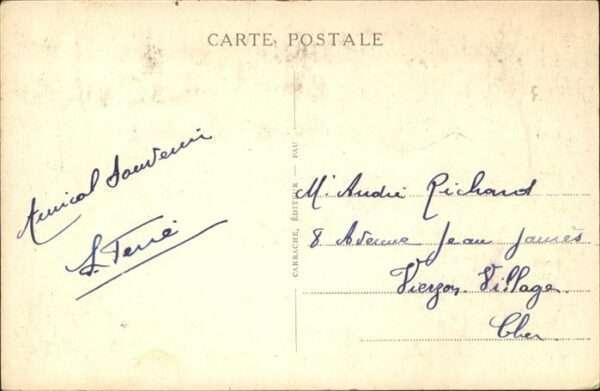 CARTE POSTALE
Amical Souvenir
CARRACHE, ÉDITEUR — PAU
Mr André Richard
8 Avenue Jean Jaurès
Vierzon-Village
Cher